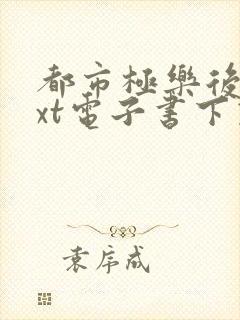 都市極樂後
xt電子書下
袁序成